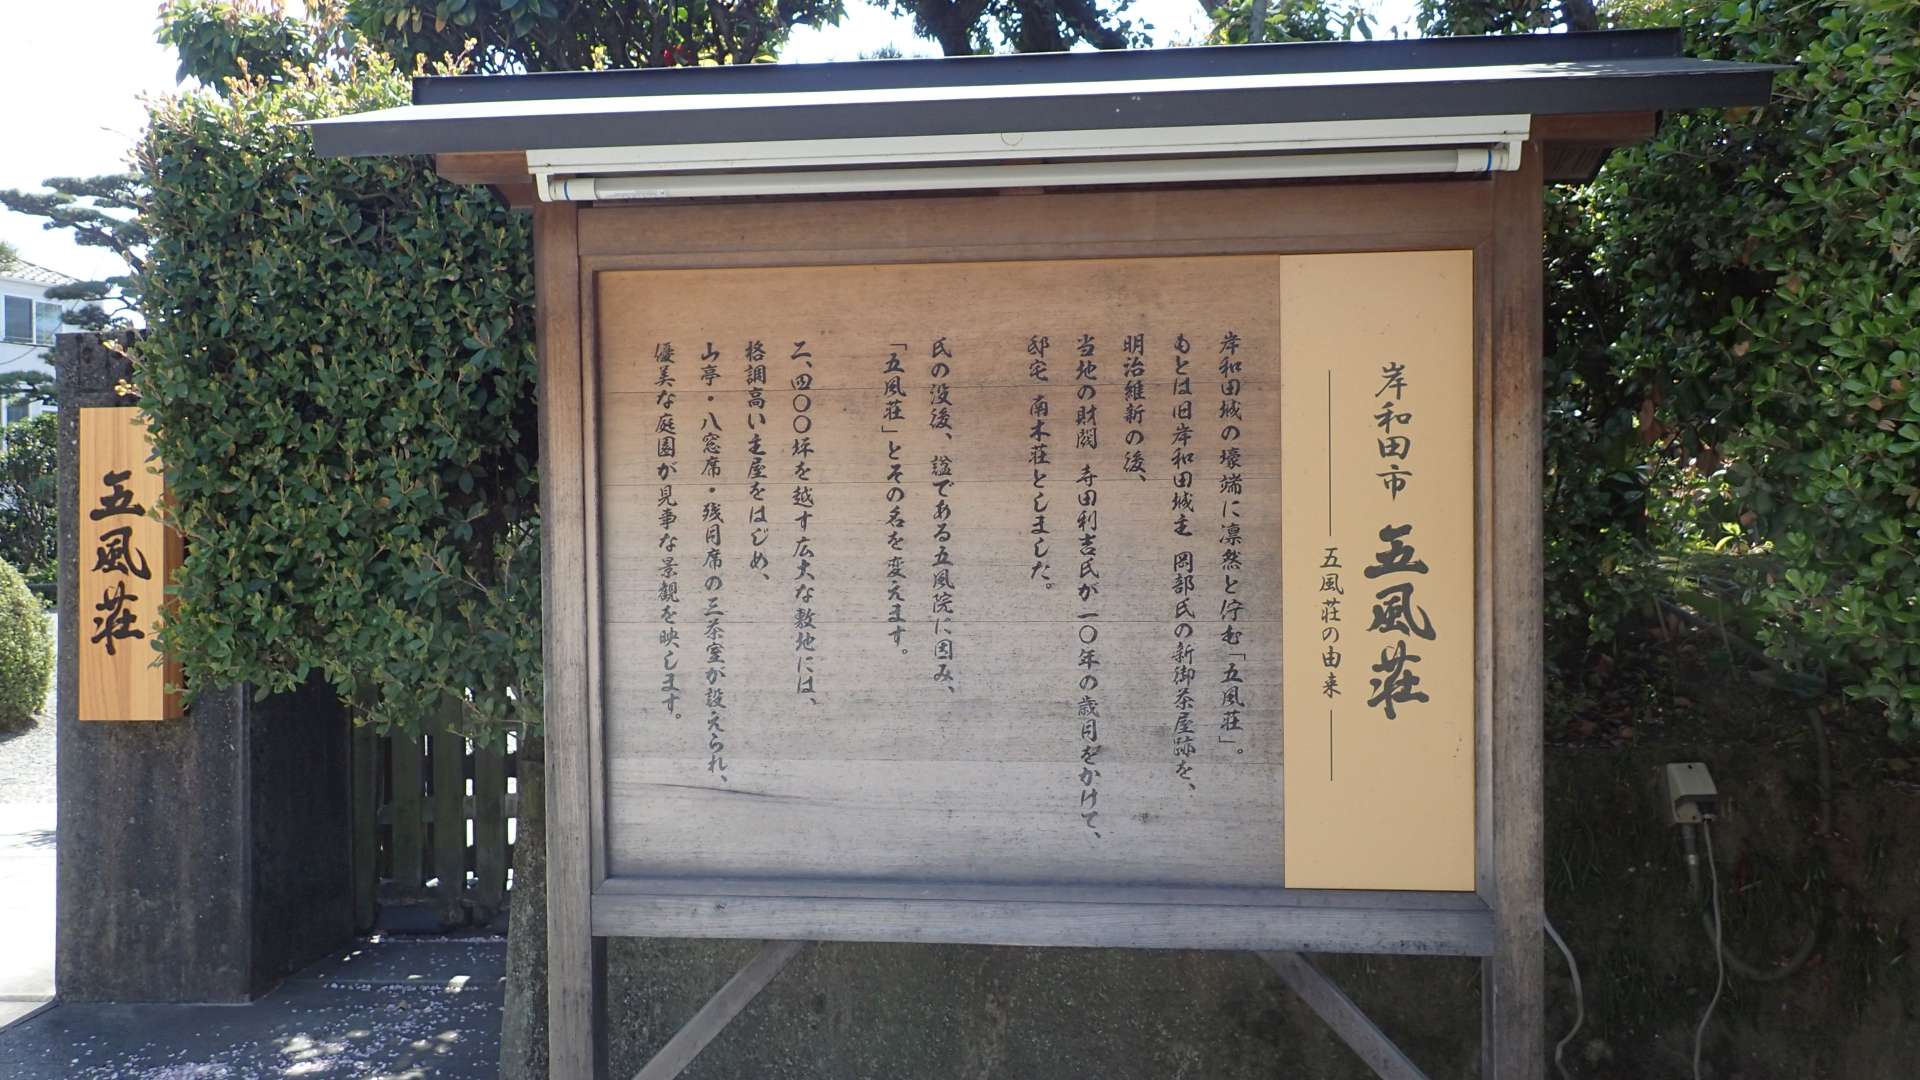 岸和田市 五風荘
五風荘の由来
岸和田城の壕端に凛然と佇む「五風荘」。
もとは旧岸和田城主 岡部氏の新御茶屋跡を、
明治維新の後、
当地の財閥 寺田利吉氏が一〇年の歳月をかけて、
邸宅 南木荘としました。
氏の没後、諡である五風院に因み、
「五風荘」とその名を変えます。
二、四〇〇坪を越す広大な敷地には、
格調高い主屋をはじめ、
山亭・八窓席・残月席の三茶室が設えられ、
優美な庭園が見事な景観を映します。
五風荘